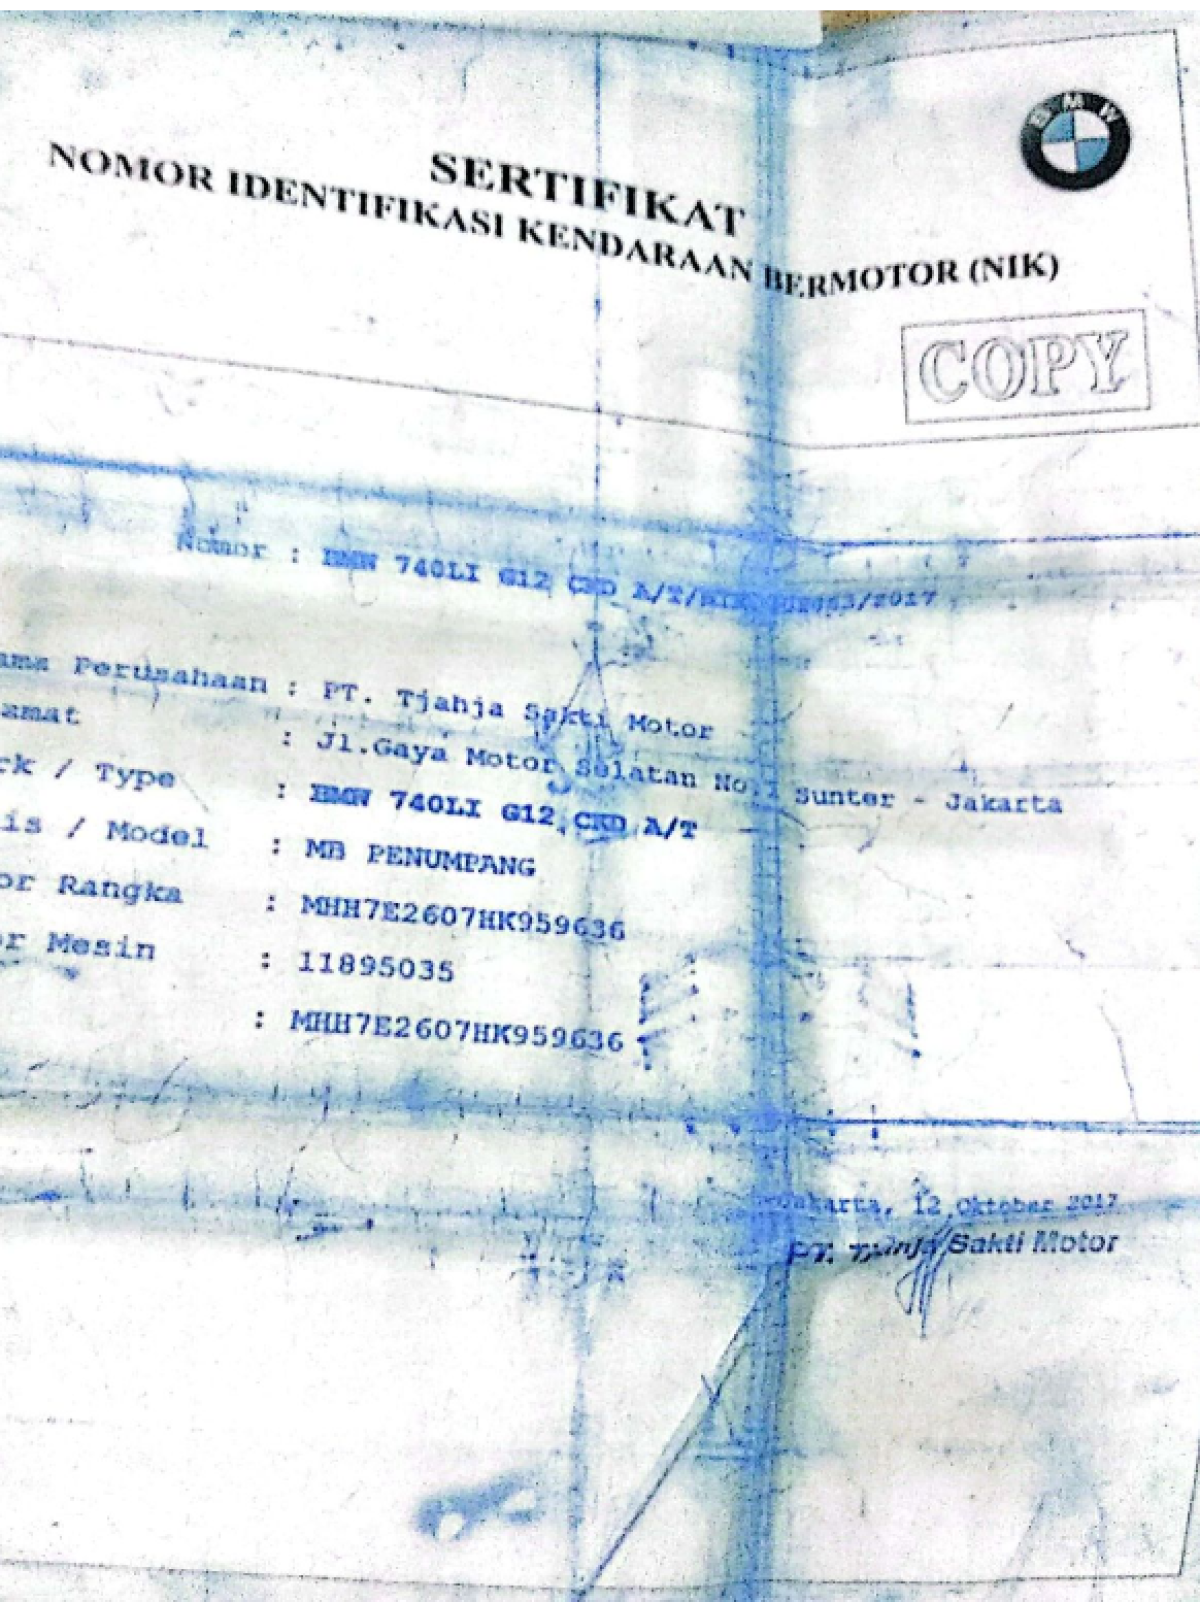 BMW
SERTIFIKAT
NOMOR IDENTIFIKASI KENDARAAN BERMOTOR (NIK)
COPY
Nomor : BMW 740LI G12 CKD A/T/
/2017
Perusahaan : PT. Tjahja Sakti Motor
: Jl.Gaya Motor Selatan Sunter - Jakarta
/ Type : BMW 740LI G12 CKD A/T
/ Model : MB PENUMPANG
Rangka : MHH7E2607HK959636
Mesin : 11895035
: MHH7E2607HK959636
Jakarta, 12 Oktober 2017
PT. Tjahja Sakti Motor